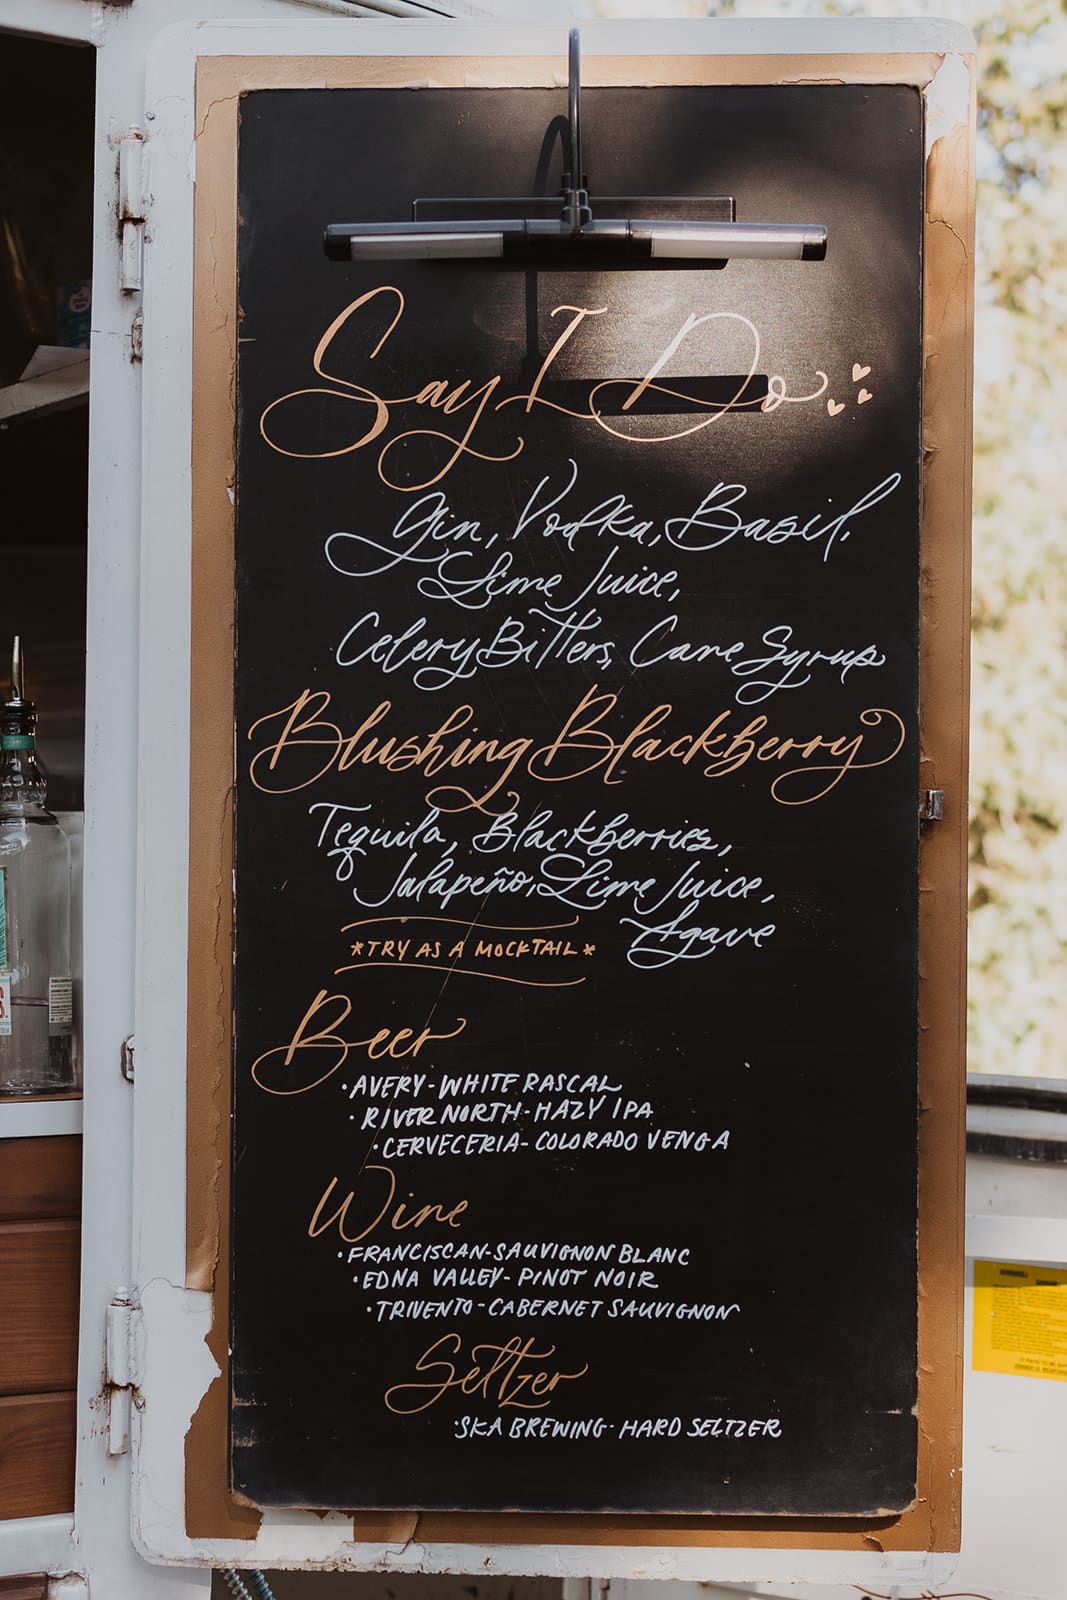 Say I Do
Gin, Vodka, Basil,
Lime Juice,
Celery Bitters, Cane Syrup
Blushing Blackberry
Tequila, Blackberries,
Jalapeño, Lime Juice,
Agave
*TRY AS A MOCKTAIL*
Beer
• AVERY - WHITE RASCAL
• RIVER NORTH - HAZY IPA
• CERVECERIA - COLORADO VENGA
Wine
• FRANCISCAN - SAUVIGNON BLANC
• EDNA VALLEY - PINOT NOIR
• TRIVENTO - CABERNET SAUVIGNON
Seltzer
• SKA BREWING - HARD SELTZER